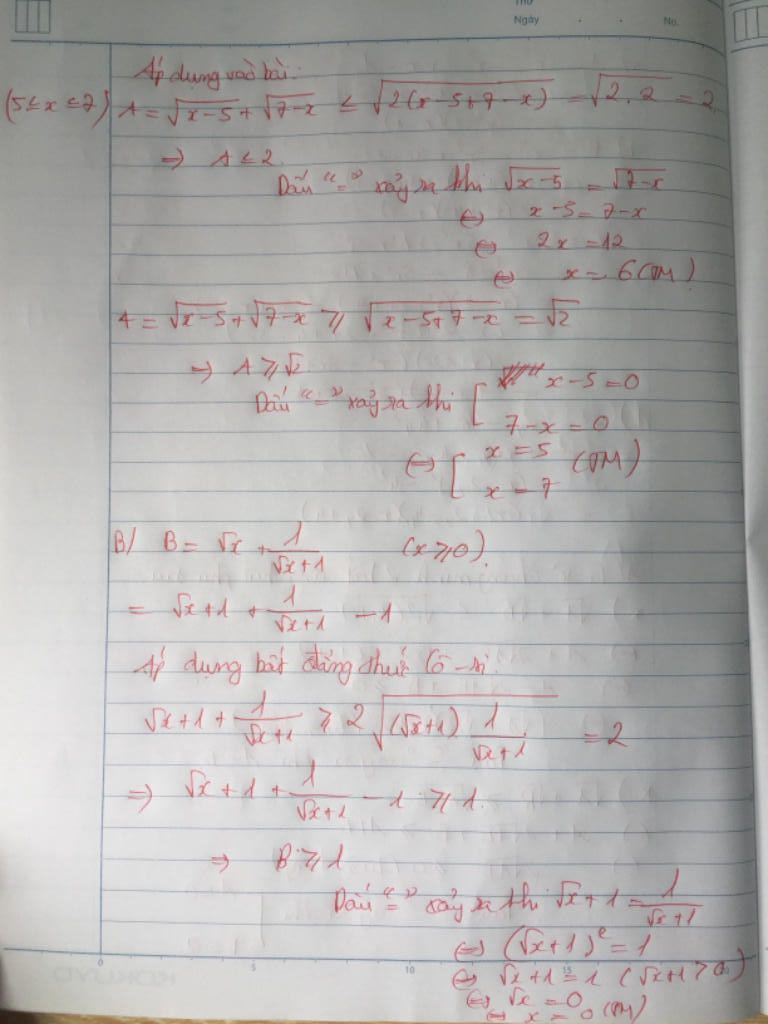 Thứ
Ngày . . No.
Áp dụng vào bài:
(5 ≤ x ≤ 7) A = √(x-5) + √(7-x) ≤ √(2(x-5+7-x)) = √(2.2) = 2
=> A ≤ 2
Dấu "=" xảy ra khi √(x-5) = √(7-x)
<=> x-5 = 7-x
<=> 2x = 12
<=> x = 6 (TM)
A = √(x-5) + √(7-x) ≥ √(x-5+7-x) = √2
=> A ≥ √2
Dấu "=" xảy ra khi [ x-5=0
7-x = 0
<=> [ x = 5 (TM)
x = 7
B/ B = √x + 1/(√x+1) (x ≥ 0).
= √x+1 + 1/(√x+1) - 1
Áp dụng bất đẳng thức Cô-si:
√x+1 + 1/(√x+1) ≥ 2√((√x+1) 1/(√x+1)) = 2
=> √x+1 + 1/(√x+1) - 1 ≥ 1.
=> B ≥ 1
Dấu "=" xảy ra khi √x+1 = 1/(√x+1)
<=> (√x+1)² = 1
<=> √x+1 = 1 (√x+1 > 0)
<=> √x = 0
<=> x = 0 (TM)
0 5 10 15